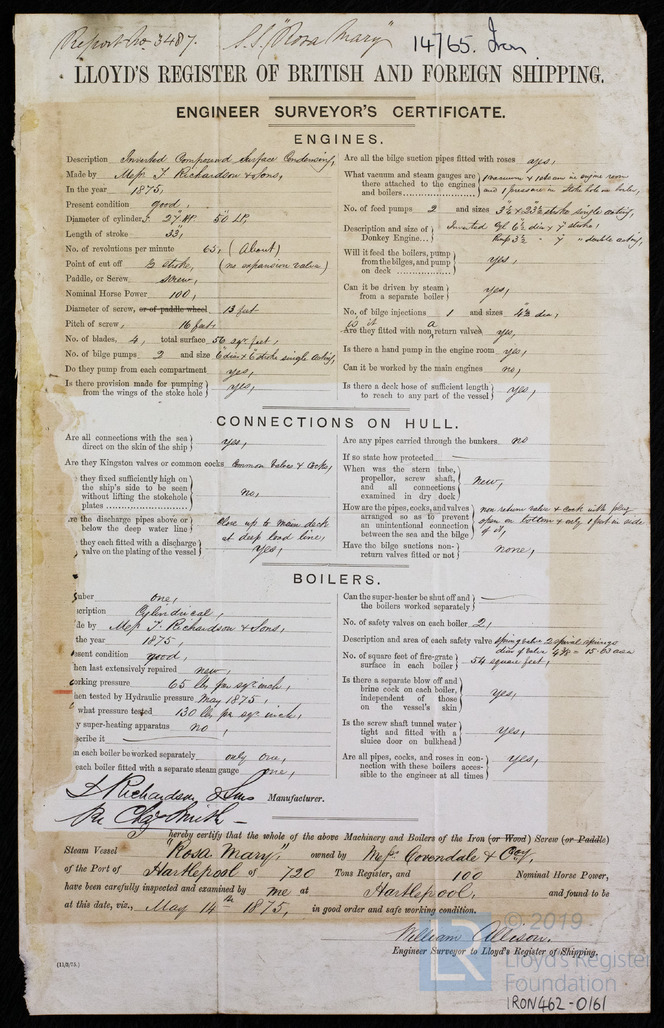 Report No. 3487. S.S. "Rosa Mary" 14765. Iron
LLOYD'S REGISTER OF BRITISH AND FOREIGN SHIPPING.
ENGINEER SURVEYOR'S CERTIFICATE.
ENGINES.
Description Inverted Compound Surface Condensing,
Made by Messrs T. Richardson & Sons,
In the year 1875,
Present condition good,
Diameter of cylinders. 27" HP. 50" LP.
Length of stroke 33",
No. of revolutions per minute 65, (About)
Point of cut off ½ stroke, (no expansion valve)
Paddle, or Screw Screw,
Nominal Horse Power 100,
Diameter of screw, or of paddle wheel 13 feet
Pitch of screw, 16 feet,
No. of blades. 4, total surface 56 sqr feet,
No. of bilge pumps 2 and size 6 dia x 6 stroke single acting,
Do they pump from each compartment yes,
Is there provision made for pumping
from the wings of the stoke hole } yes,
Are all the bilge suction pipes fitted with roses yes,
What vacuum and steam gauges are
there attached to the engines
and boilers } 1 vacuum & 1 steam in engine room
and 1 pressure in Stoke hole on boiler,
No. of feed pumps 2 and sizes stroke single acting,
Description and size of
Donkey Engine } Inverted Cyl 6½ dia, 7 stroke,
double acting,
Will it feed the boilers, pump
from the bilges, and pump
on deck } yes,
Can it be driven by steam
from a separate boiler } yes,
No. of bilge injections 1 and sizes 4½ dia,
is it a
Are they fitted with non return valves yes,
Is there a hand pump in the engine room yes,
Can it be worked by the main engines no,
Is there a deck hose of sufficient length
to reach to any part of the vessel } yes,
CONNECTIONS ON HULL.
Are all connections with the sea
direct on the skin of the ship } yes,
Are they Kingston valves or common cocks Common Valves & Cocks,
they fixed sufficiently high on
the ship's side to be seen
without lifting the stokehole
plates } no,
re the discharge pipes above or
below the deep water line } Close up to main deck
at deep load line,
they each fitted with a discharge
valve on the plating of the vessel } yes,
Are any pipes carried through the bunkers no
If so state how protected
When was the stern tube,
propellor, screw shaft,
and all connections
examined in dry dock } new,
How are the pipes, cocks, and valves
arranged so as to prevent
an unintentional connection
between the sea and the bilge } non return valve & Cock with plug
open on bottom & only 1 port in side
of it,
Have the bilge suctions non-
return valves fitted or not } none,
BOILERS.
umber one,
cription Cylindrical,
de by Messrs T. Richardson & Sons,
the year 1875,
sent condition good,
hen last extensively repaired new,
orking pressure 65 lbs per sqr inch,
hen tested by Hydraulic pressure May 1875,
what pressure tested 130 lbs per sqr inch,
y super-heating apparatus no,
scribe it
n each boiler be worked separately only one,
each boiler fitted with a separate steam gauge one,
Can the super-heater be shut off and
the boilers worked separately }
No. of safety valves on each boiler 2,
Description and area of each safety valve Spring valve 2 spiral springs
dia of valve 4½ = 15·63 area
No. of square feet of fire-grate
surface in each boiler } 54 square feet,
Is there a separate blow off and
brine cock on each boiler,
independent of those
on the vessel's skin } yes,
Is the screw shaft tunnel water
tight and fitted with a
sluice door on bulkhead } yes,
Are all pipes, cocks, and roses in con-
nection with these boilers acces-
sible to the engineer at all times } yes,
T. Richardson & Sons Manufacturer.
Per Chas Smith
hereby certify that the whole of the above Machinery and Boilers of the Iron (or Wood) Screw (or Paddle)
Steam Vessel "Rosa Mary," owned by Messrs Covendale & Coy,
of the Port of Hartlepool of 720 Tons Register, and 100 Nominal Horse Power,
have been carefully inspected and examined by me at Hartlepool, and found to be
at this date, viz., May 14th 1875, in good order and safe working condition.
William Allison,
Engineer Surveyor to Lloyd's Register of Shipping.
(11/9/73.)
© 2019
Lloyd's Register
Foundation
IRON462-0161